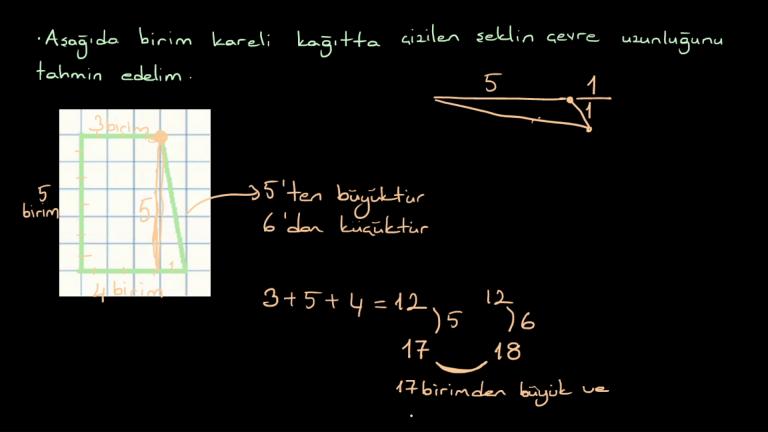 · Aşağıda birim kareli kağıtta çizilen şeklin çevre uzunluğunu
tahmin edelim.
5 1
1
3 birim
5
birim
5
1
4 birim
5'ten büyüktür
6'dan küçüktür
3+5+4 = 12 12
5 6
17 18
17 birimden büyük ve